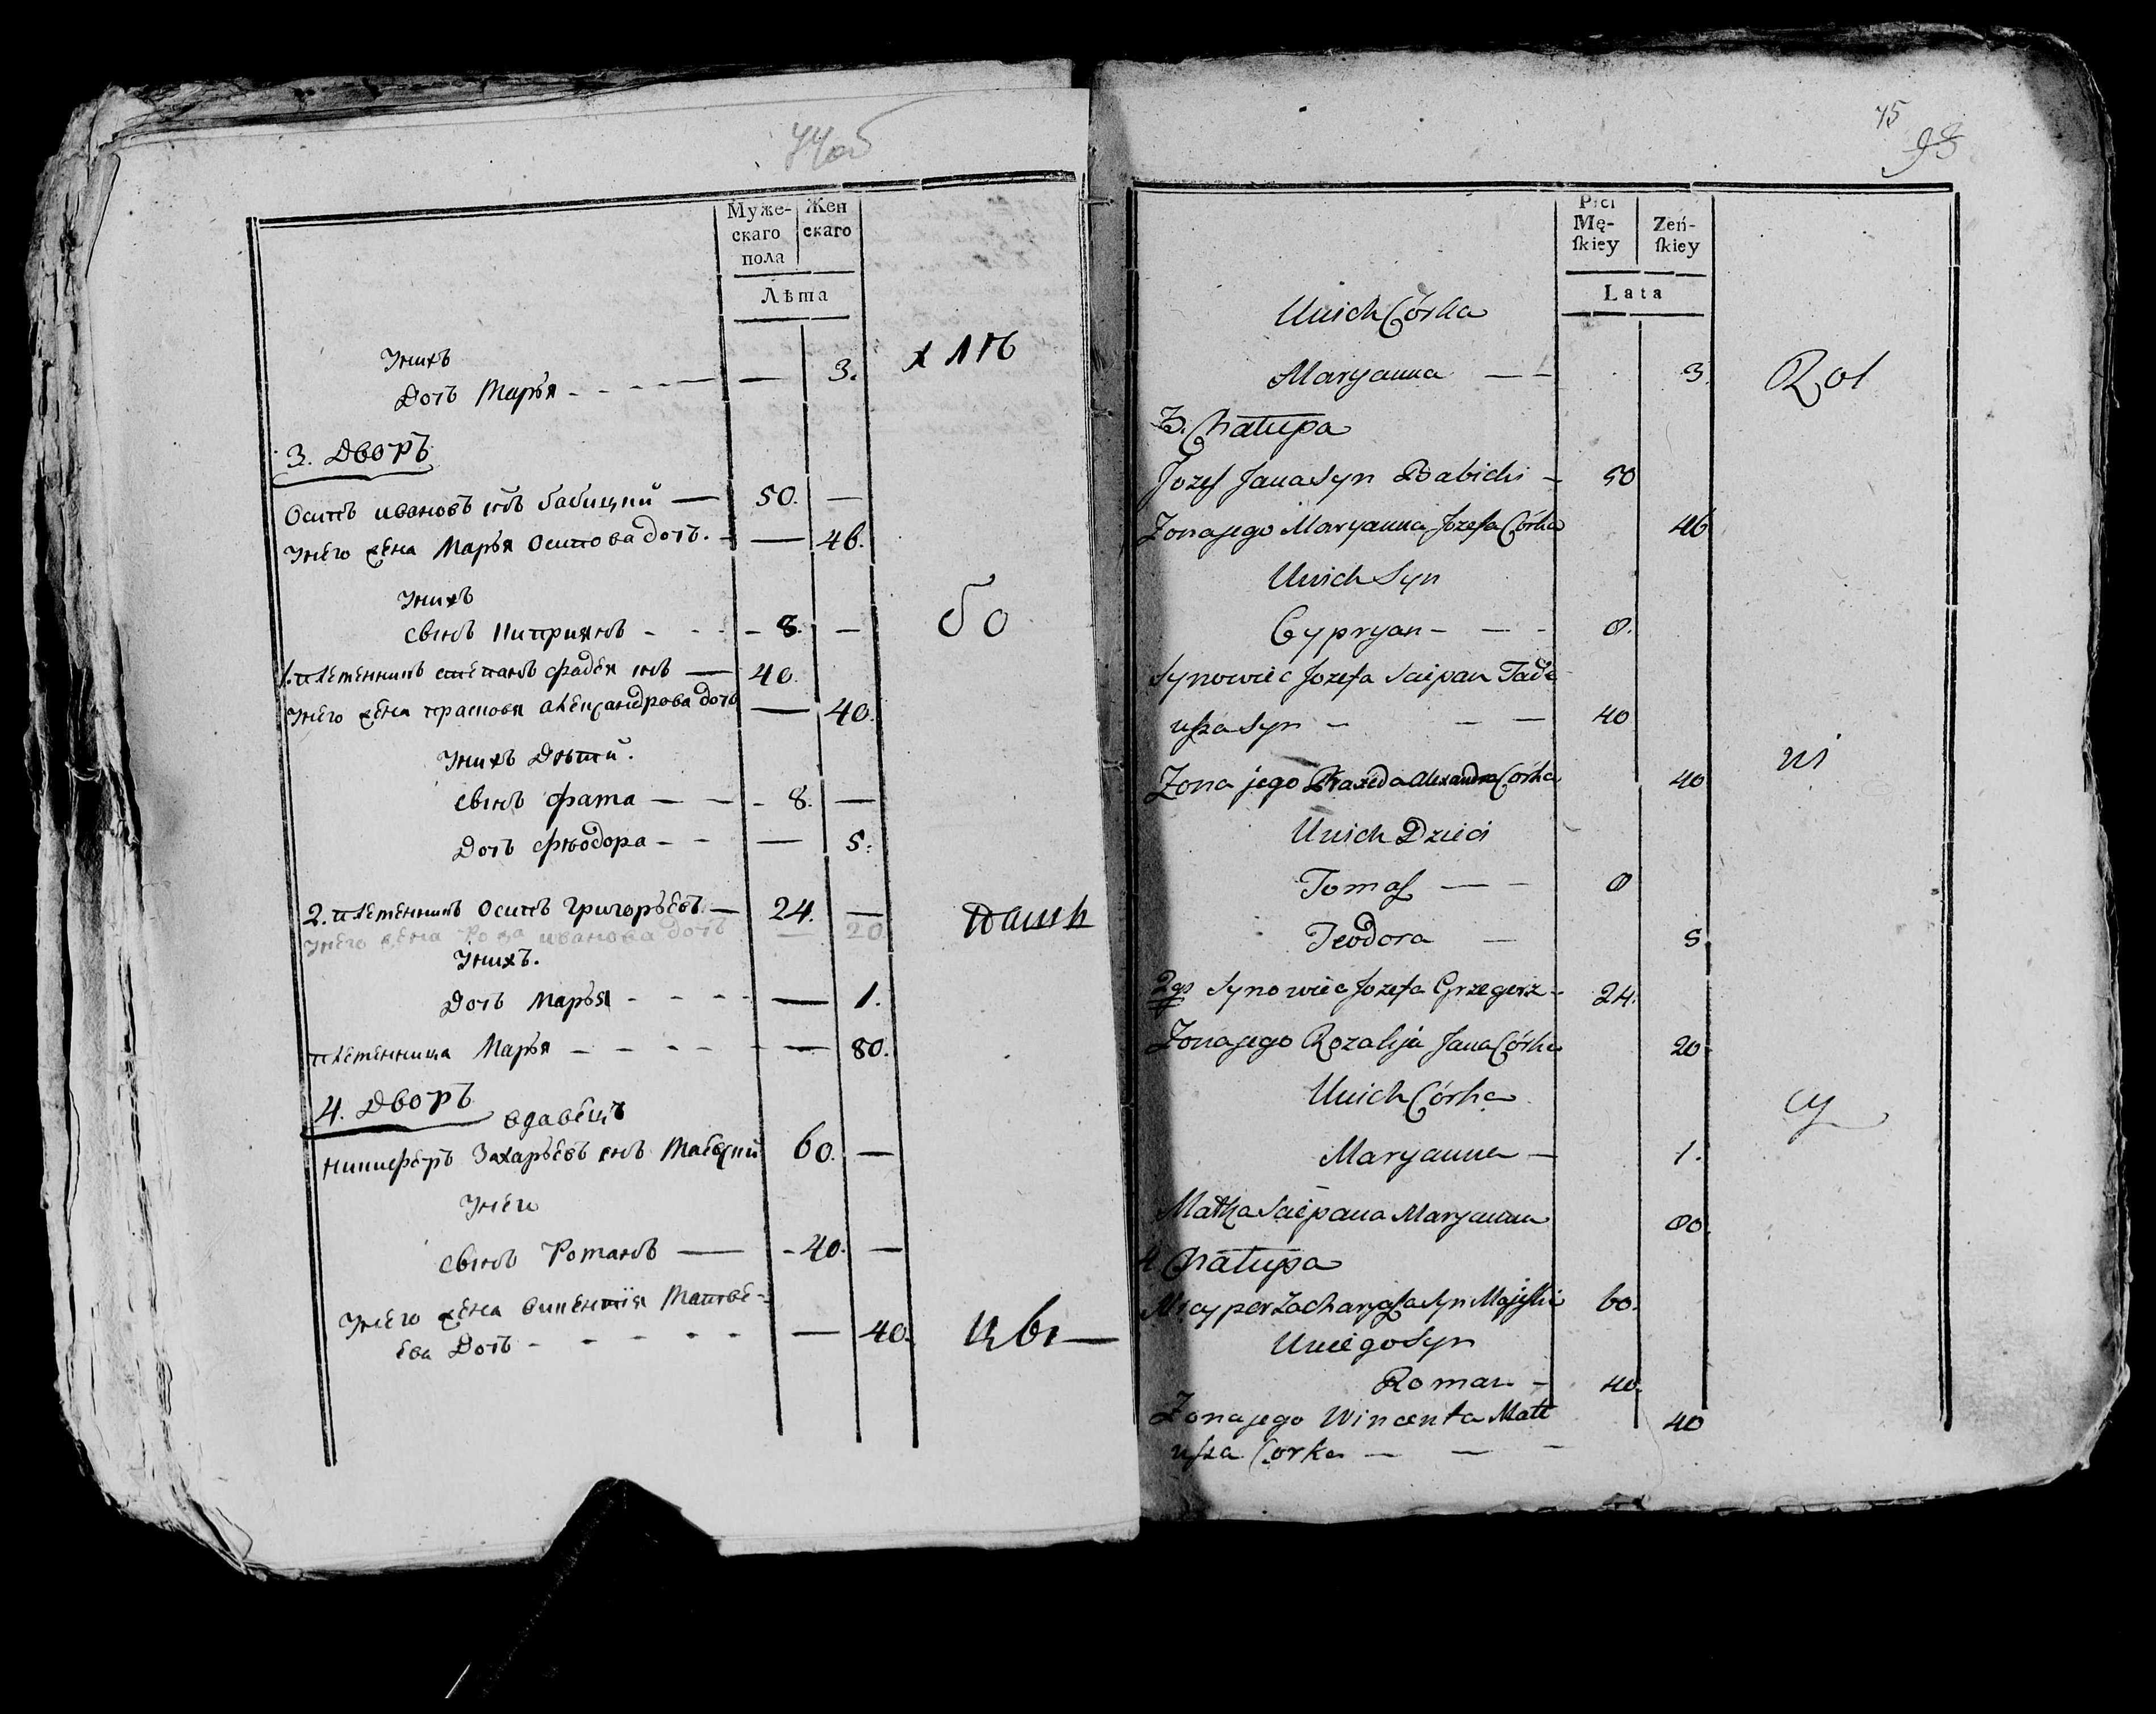 44об
Муже-
скаго
пола
Жен
скаго
Лѣта
Унихъ
Дочь Марья - - - - — — 3.
3. Дворъ
Осипъ ивановъ снъ бабицкий — 50. —
Унего жена Марья Осипова дочь. - — 46.
Унихъ
сынъ Киприянъ - - - 8. —
1. племенникъ степанъ фадея снъ — 40.
Унего жена прасковя александрова дочь — 40.
Унихъ Дѣти.
сынъ фама — — - 8. —
Дочь фѣодора - - — 5.
2. племенникъ Осипъ Григорьевъ — 24. —
Унего жена Роза иванова дочь — 20
Унихъ.
Дочь Марья - - - - — 1.
племенница Марья - - - - - — 80.
4. Дворъ
вдавецъ
Никиферъ Захарьевъ снъ Маевский 60. —
Унего
сынъ Романъ — - 40. —
Унего жена викентия Матвѣ-
ева Дочь - - - - - — 40.
бо
цвы—
75
98
Płci
Mę-
ſkiey
Zeń-
ſkiey
Lata
Unich Córka
Maryanna — — 3.
3. Chałupa
Jozef Jana Syn Babicki - 50
Zona jego Maryanna Jozefa Córka 46
Unich Syn
Cypryan - — - 8.
Synowiec Jozefa Sciepan Tade
uſza Syn - — — 40
Zona jego Praxeda Alexandra Córka 40
Unich Dzieci
Tomaſz — - 8
Teodora — 5.
2gi Synowiec Jozefa Grzegorz - 24.
Zona jego Rozalija Jana Córka 20
Unich Córka
Maryanna — 1.
Matka Sciepana Maryanna 80.
4 Chałupa
Nicyper Zacharyaſza Syn Majeſki 60.
Uniego Syn
Roman - 40.
Zona jego Wincenta Mate 40
uſza Corka — — -
Rol
ni
cy